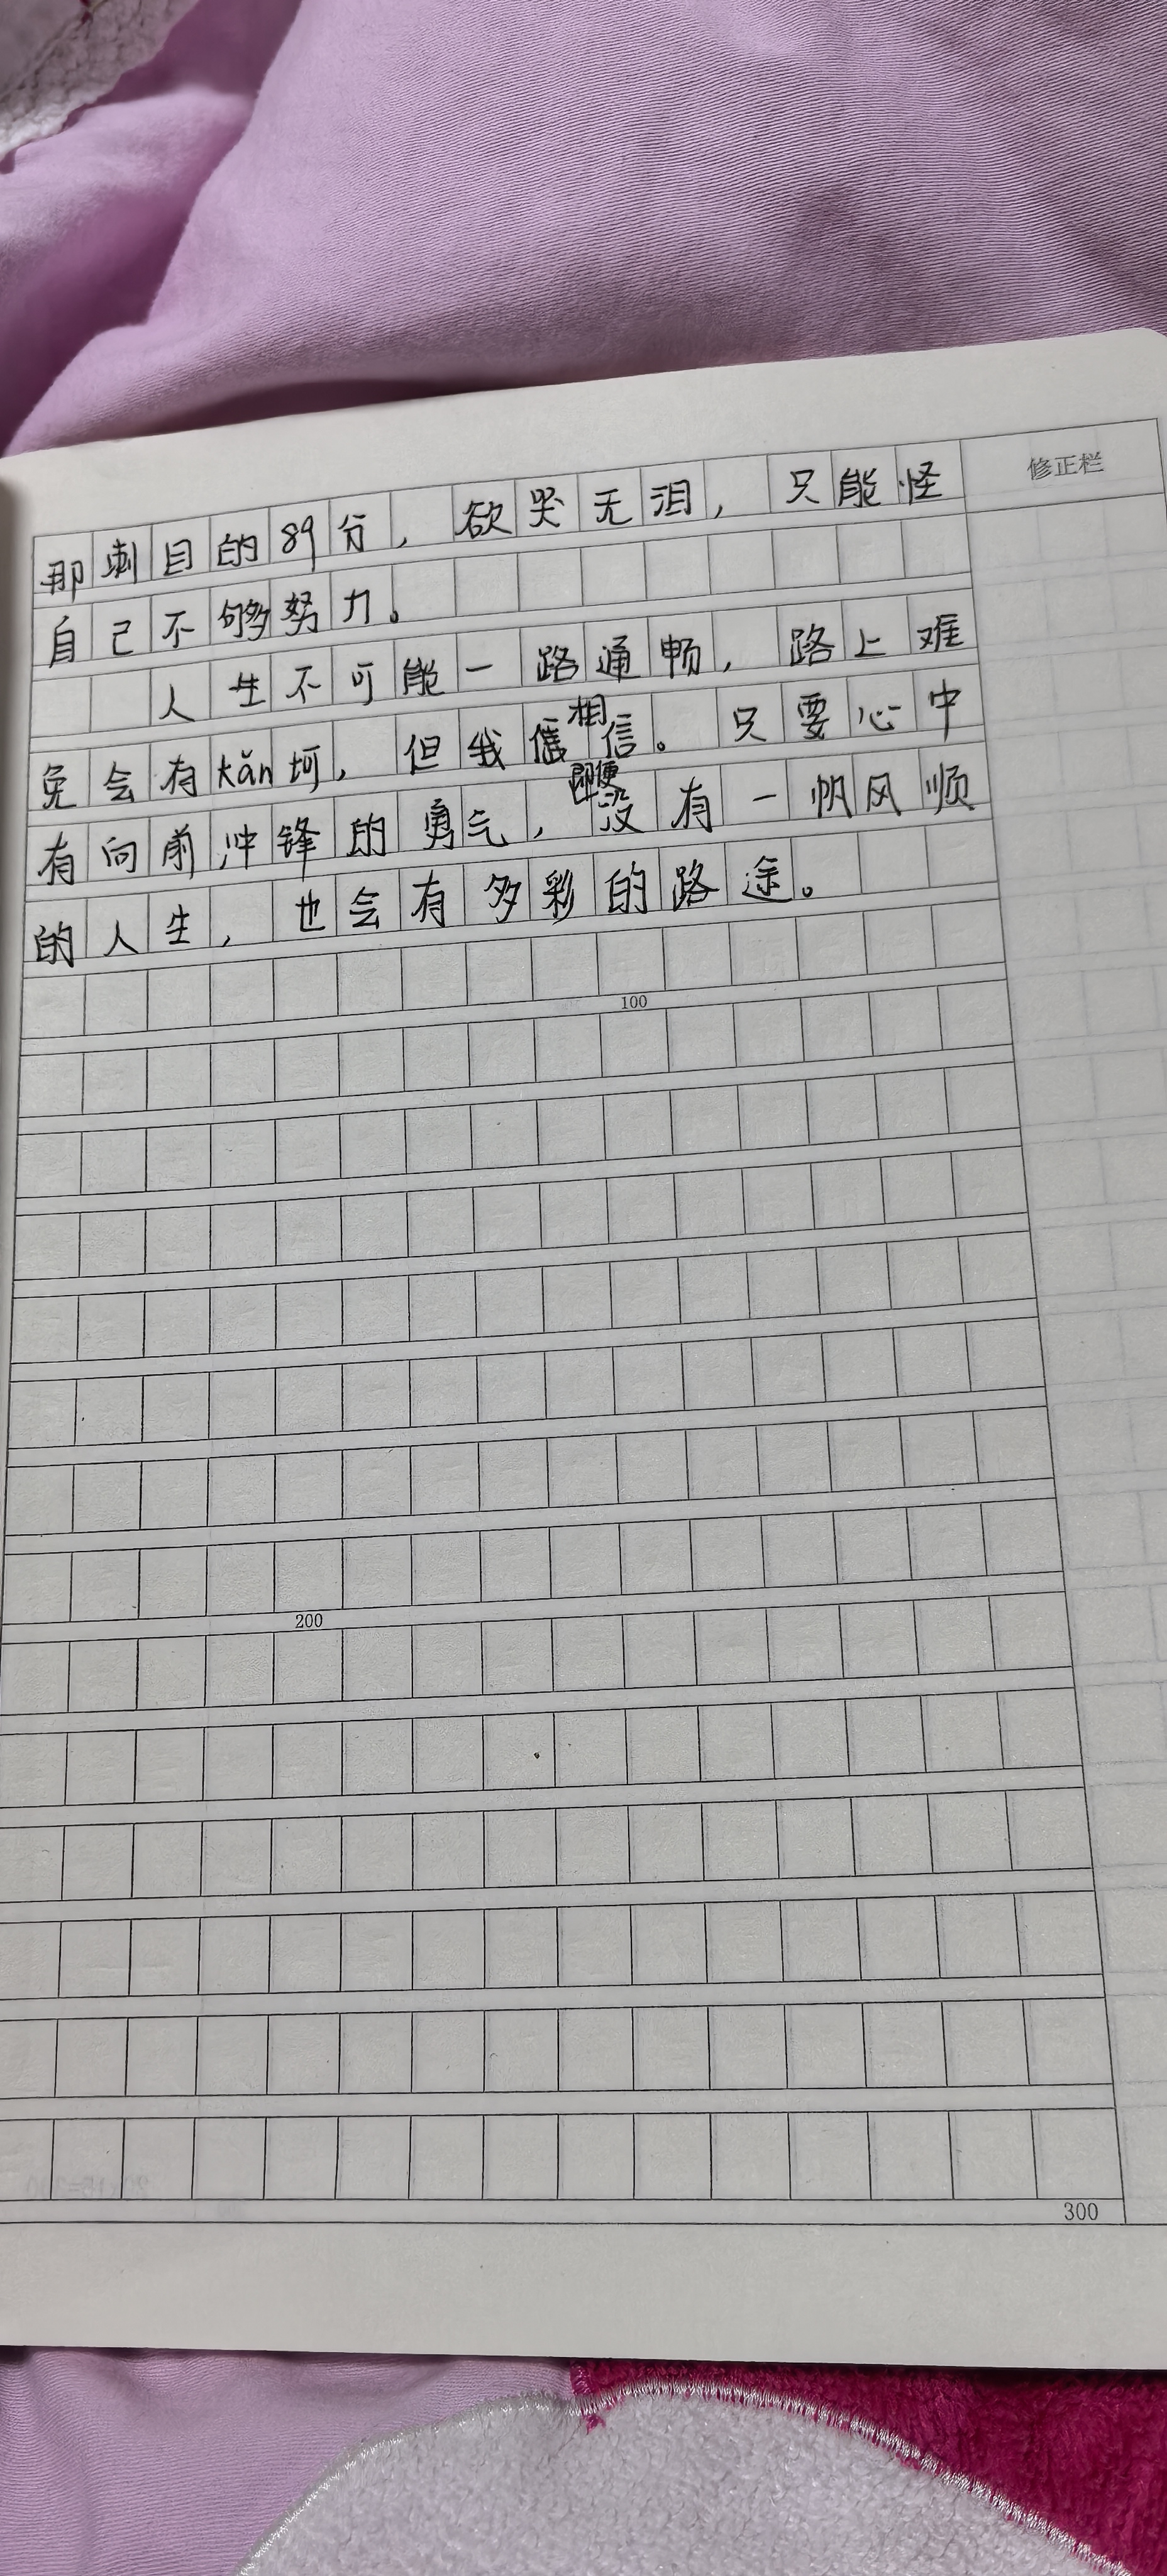 修正栏
那刺目的89分，欲哭无泪，只能怪
自己不够努力。
人生不可能一路通畅，路上难
免会有kǎn坷，但我相信。只要心中
有向前冲锋的勇气，即便没有一帆风顺
的人生，也会有多彩的路途。
100
200
300